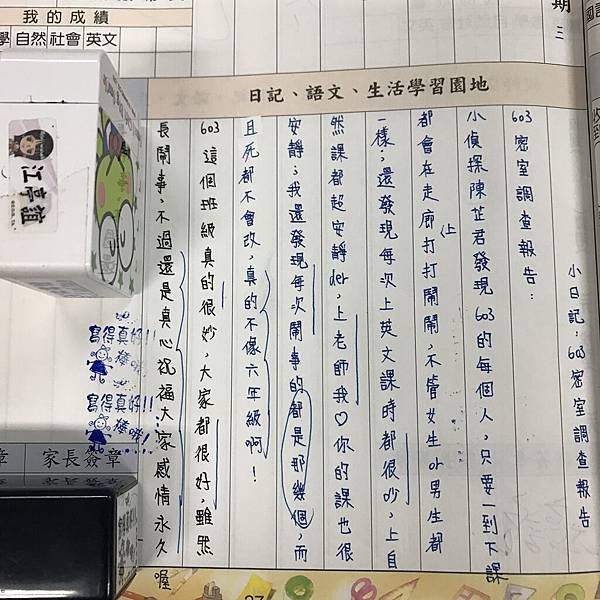 我的成績
學 自然 社會 英文
期
三
日記、語文、生活學習園地
小日記:603密室調查報告
603密室調查報告:
小偵探陳芷君發現603的每個人,只要一到下課
都會在走廊上打打鬧鬧,不管女生or男生都
一樣;還發現每次上英文課時都很吵,上自
然課都超安靜der,上老師我♡你的課也很
安靜;我還發現每次鬧事的都是那幾個,而
且死都不會改,真的不像六年級啊!
603這個班級真的很妙,大家都很好,雖然
長鬧事,不過還是真心祝福大家感情永久喔
寫得真好!!
棒哦!
寫得真好!!
棒哦!
章
家長簽章
江亭誼
27